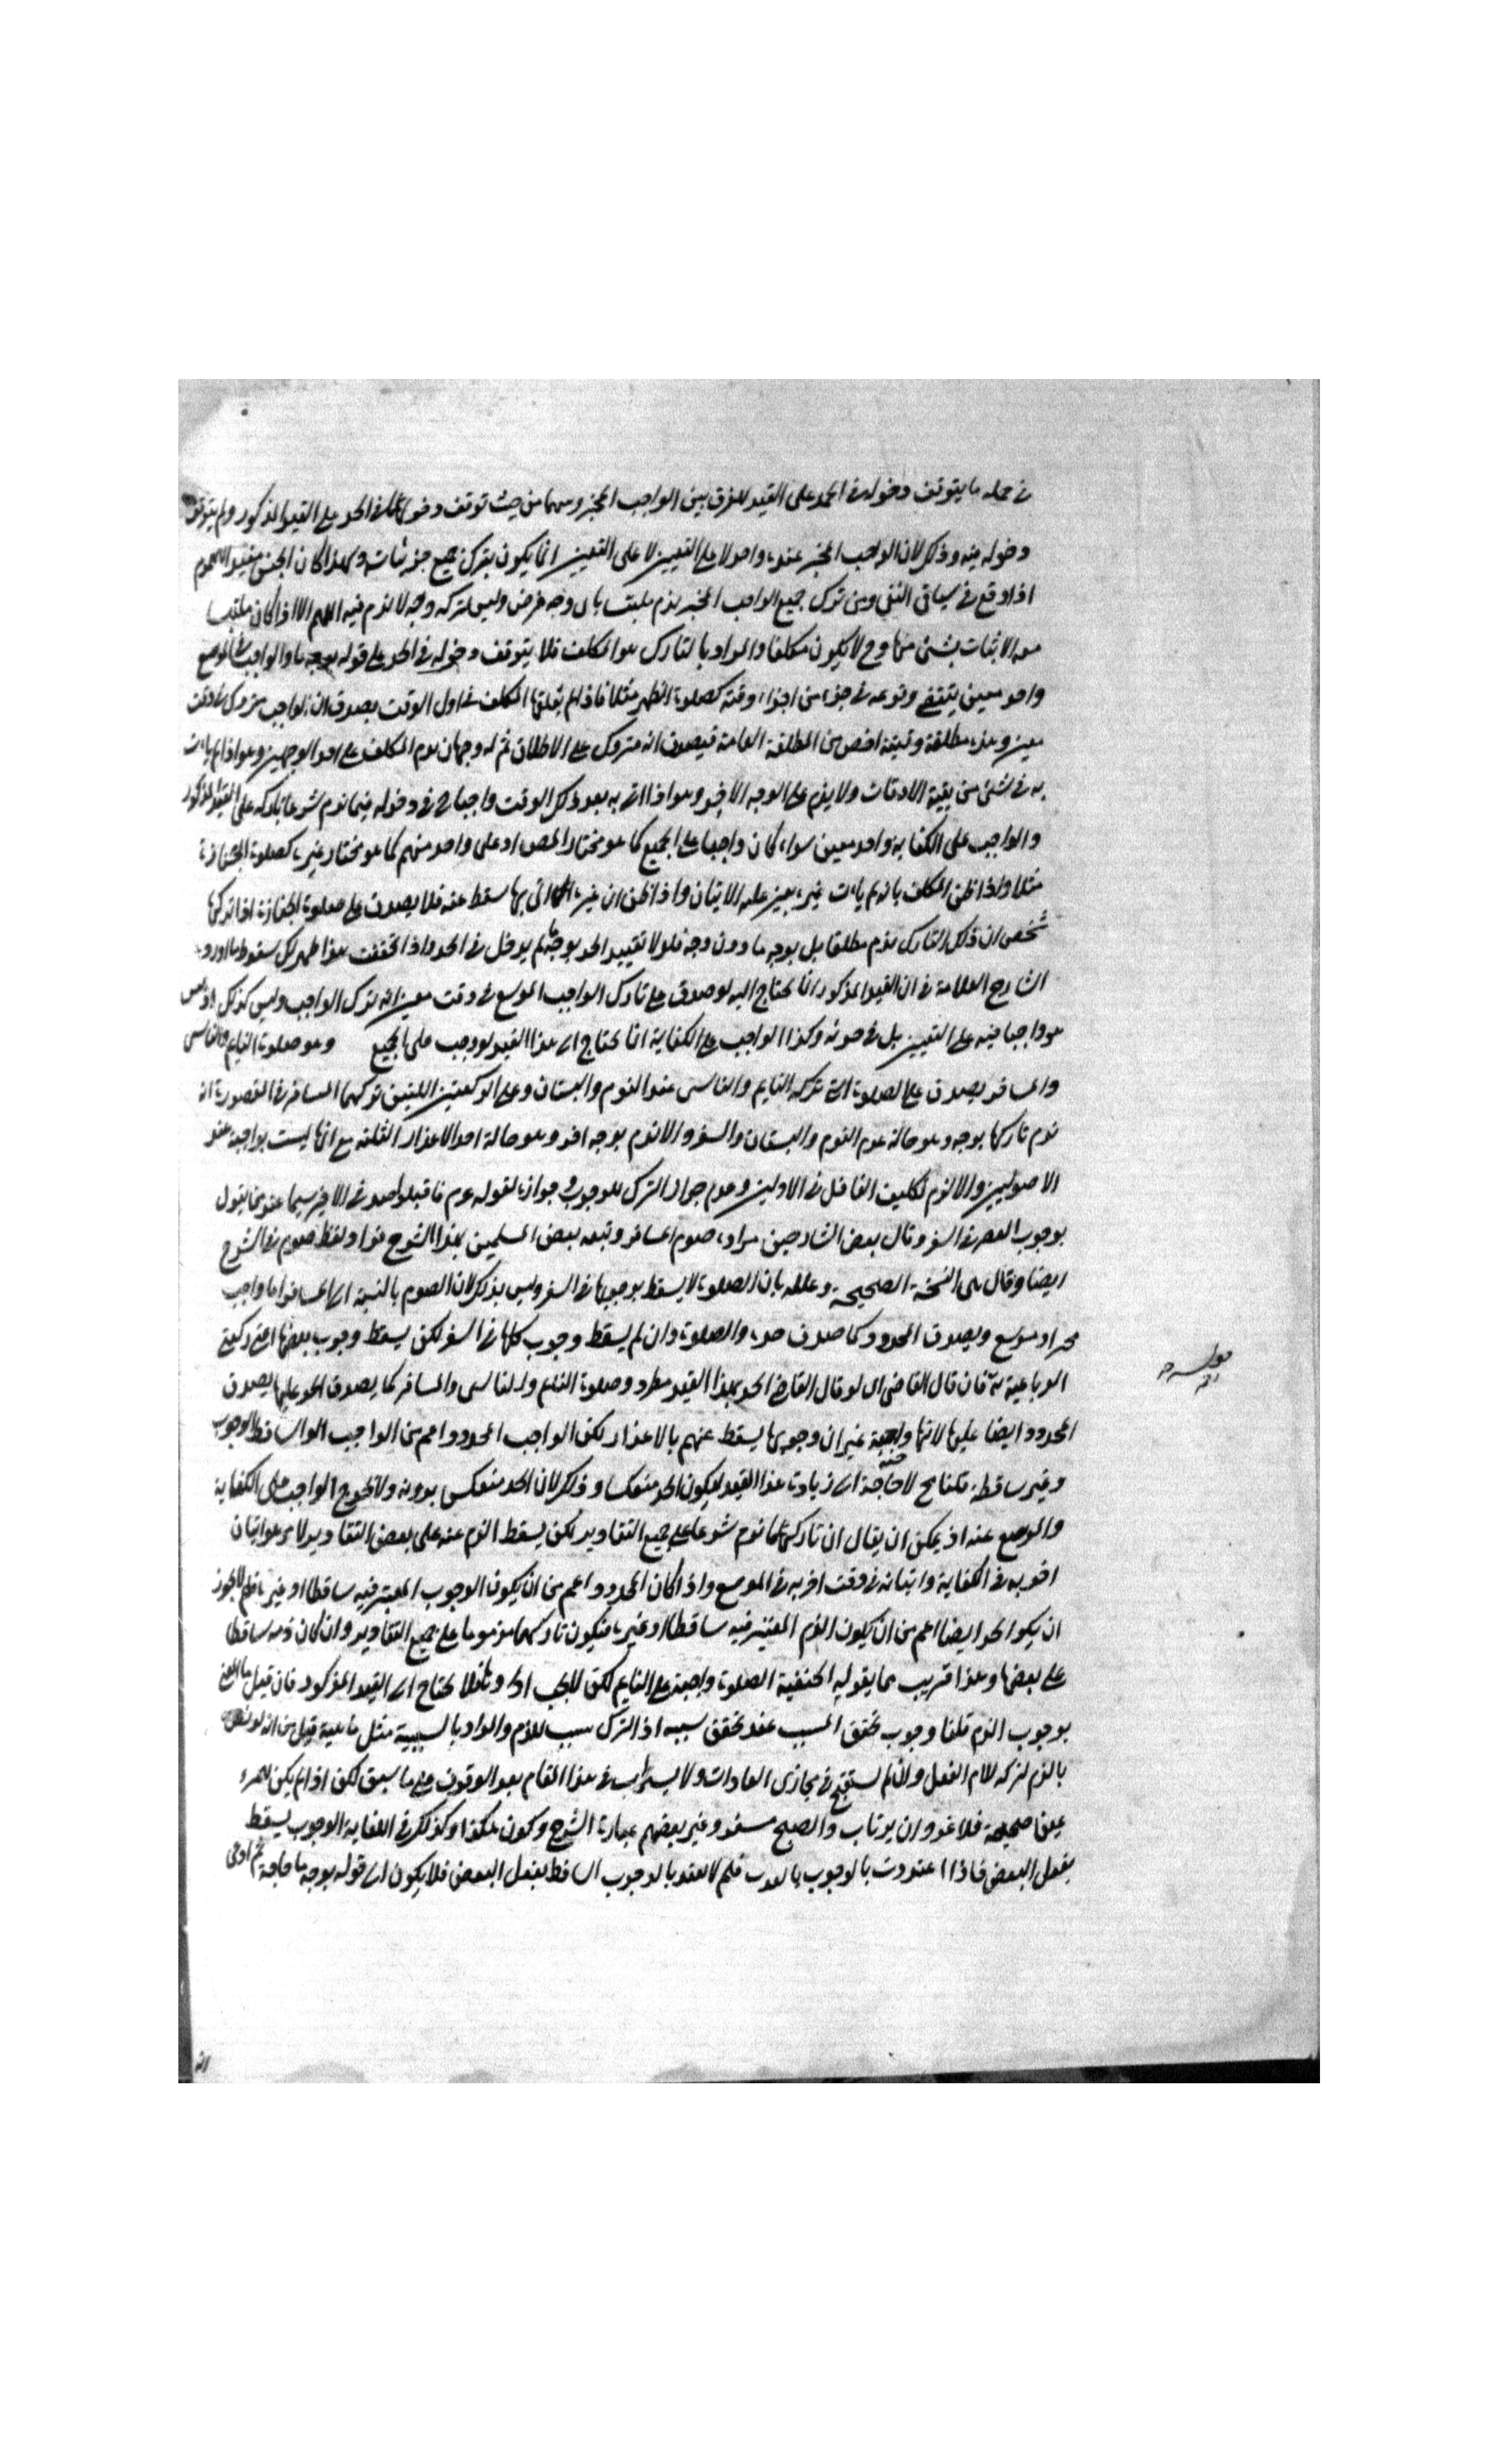 في جملة ما يتوقف دخوله في الحد على القيد للفرق بين الواجب المخير وبينهما من حيث توقف دخولهما في الحد على القيد المذكور ولم يتوقف
دخوله فيه وذلك لان الواجب المخير عنده واحد لا على التعيين لا على التعيين انما يكون بترك جميع جزئياته ولهذا كان الجنس مفيد العموم
اذا وقع في سياق النفي ومن ترك جميع الواجب المخير يذم ملتبسا باي وجه فرض وليس لتركه وجه لا يذم فيه اللهم الا اذا كان ملتبسا
معه الاتيان بشئ منها وح لا يكون مكلفا والمراد بالتارك هو المكلف فلا يتوقف دخوله في الحد على قوله بوجه ما والواجب الموسع
واحد معين ينتفي وقوعه في جزء من اجزاء وقته كصلوة الظهر مثلا فاذا لم يفعلها المكلف في اول الوقت يصدق ان الواجب متروك في وقت
معين وهذه مطلقة وقتية اخص من المطلقة العامة فيصدق انه متروك على الاطلاق ثم له وجهان يذم المكلف على احد الوجهين وهو اذا لم يات
به في شئ من بقية الاوقات ولا يذم على الوجه الاخر وهو اذا اتى به بعد ذلك الوقت واحتاج في دخوله فيما يذم شرعا تاركه على القيد المذكور
والواجب على الكفاية واحد معين سواء كان واجبا على الجميع كما هو مختار المص او على واحد منهم كما هو مختار غيره كصلوة الجنازة
مثلا واذا ظن المكلف بانه لم يات غيره يعين عليه الاتيان واذا ظن ان غيره اتى بها سقط عنه فلا يصدق على صلوة الجنازة اذا تركها
شخص ان ذلك التارك يذم مطلقا بل بوجه ما دون وجه فلولا تقييد الحد بوجه ما لم يدخل في الحد واذا تحققت هذا ظهر لك سقوط ما اورده
الشارح العلامة في ان القيد المذكور انما يحتاج اليه لو صدق على تارك الواجب الموسع في وقت معين انه ترك الواجب وليس كذلك اذ ليس
هو واجبا فيه على التعيين بل في حصته وكذا الواجب على الكفاية انما يحتاج الى هذا القيد لو وجب على الجميع وهو صلوة النايم والناسي
والمسافر يصدق على الصلوة التي تركه النايم والناسي عند النوم والنسيان وعلى الركعتين اللتين تركهما المسافر في القصر انه
يذم تاركها بوجه وهو حالة عدم النوم والنسيان والسفر ولا يذم بوجه اخر وهو حالة احد الاعذار الثلثة مع انها ليست بواجبة عند
الاصوليين والا لزم تكليف الغافل في الاولين وعدم جواز الترك للوجوب وجوازه لقوله عم فاقبلوا صدقته في الاخير سيما عند من يقول
بوجوب القصر في السفر وقال بعض الشارحين مراده صوم المسافر وتبعه بعض المسلمين بهذا الشرح فزاد لفظ صوم في الشرح
ايضا وقال هي النسخة الصحيحة وعلله بان الصلوة لا يسقط بوجوبها في السفر وليس بذلك لان الصوم بالنسبة الى المسافر اما واجب
مخير او موسع ويصدق المحدود كما صدق حده والصلوة وان لم يسقط وجوب كلها في السفر لكن يسقط وجوب بعضها اعني ركعتي
الرباعية قوله فان قال القاضي اي لو قال القاضي الحد بهذا القيد مطرد وصلوة النايم والناسي والمسافر كما يصدق الحد عليها يصدق
المحدود ايضا عليها لانها واجبة غير ان وجوبها يسقط عنهم بالاعذار لكن الواجب المحدود اعم من الواجب الساقط الوجوب
وغير ساقطه قلنا ح لا حاجة الى زيادة هذا القيد ليكون الحد منعكسا وذلك لان الحد منعكس بدونه ولا يخرج الواجب على الكفاية
والموسع عنه اذ يمكن ان يقال ان تاركهما يذم شرعا على جميع التقادير لكن يسقط الذم عنه على بعض التقادير لامر هو اتيان
اخر به في الكفاية واتيانه في وقت اخر به في الموسع واذا كان المحدود اعم من ان يكون الوجوب المعتبر فيه ساقطا او غيره فلم لا يجوز
ان يكون الحد ايضا اعم من ان يكون الذم المعتبر فيه ساقطا او غيره فيكون تاركهما مذموما على جميع التقادير وان كان ذمه ساقطا
على بعضها وهذا قريب مما يقوله الحنفية الصلوة واجبة على النايم لكن لا يجب اداؤها فلا يحتاج الى القيد المذكور فان قيل ما المعنى
بوجوب الذم قلنا وجوب تحقق المسبب عند تحقق سببه اذ الترك سبب للذم والمراد بالسببية مثل ما
بالذم لتركه للام الفعل وان لم يستقبح في مجازى العادات ولا يستراب في هذا المقام بعد الوقوف على ما سبق لكن اذا لم يكن للمرء
عين صحيحة فلا غرو ان يرتاب والصبح مسفر وغير بعضهم عبارة الشرح وكون هكذا وكذلك في الكفاية الوجوب يسقط
بفعل البعض فاذا اعتددت بالوجوب فلم لا يعتد بالوجوب الساقط بفعل البعض فلا يكون الى قوله بوجه ما حاجة ثم ادعى